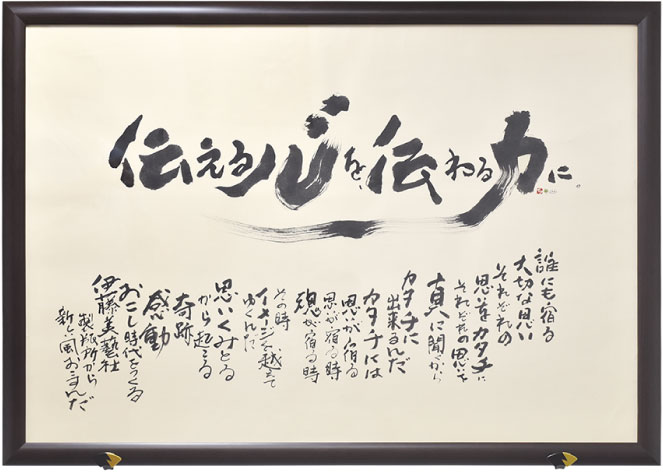 伝える心を、伝わる力に。
誰にも宿る
大切な思い
それぞれの
思いをカタチに
それぞれの思いを
真に聞くから
カタチに
出来るんだ
カタチには
思いが宿る
思いが宿る時
魂が宿る時
その時
イメージを越えて
ゆくんだ
思いくみとる
から起こる
奇跡
感動
おこし時代をつくる
伊藤美藝社
製版所から
新しい風おこすんだ